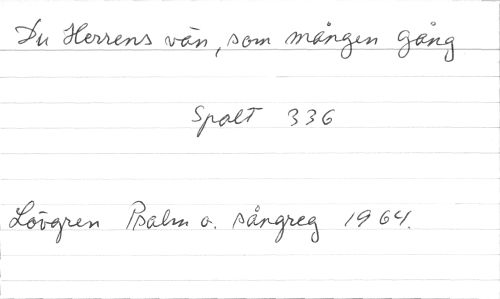 Du Herrens vän, som mången gång
Spalt 336
Lövgren Psalm o. sångreg 1964.